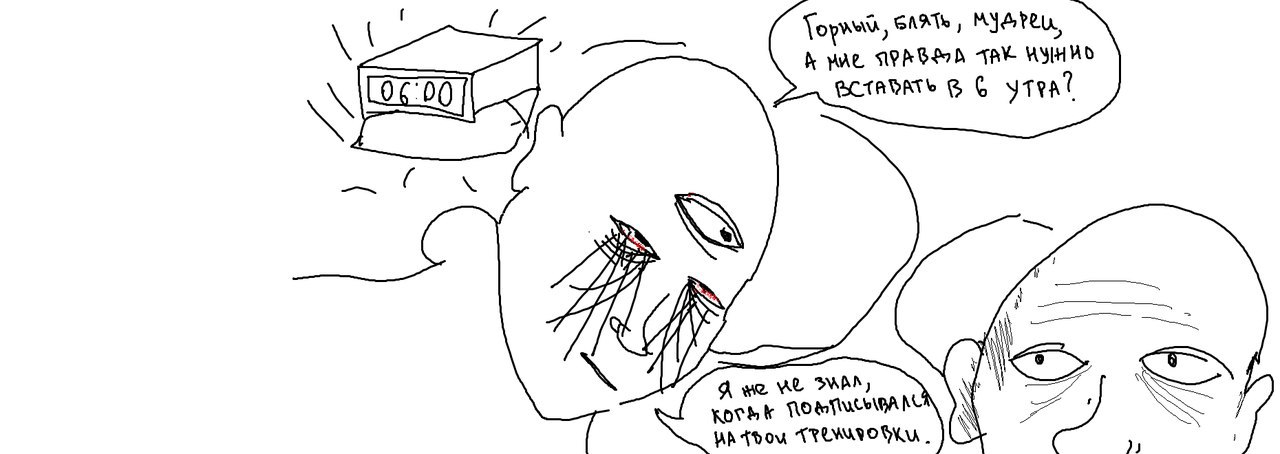 06:00
Горный, блять, мудрец,
а мне правда так нужно
вставать в 6 утра?
Я же не знал,
когда подписывался
на твои тренировки.